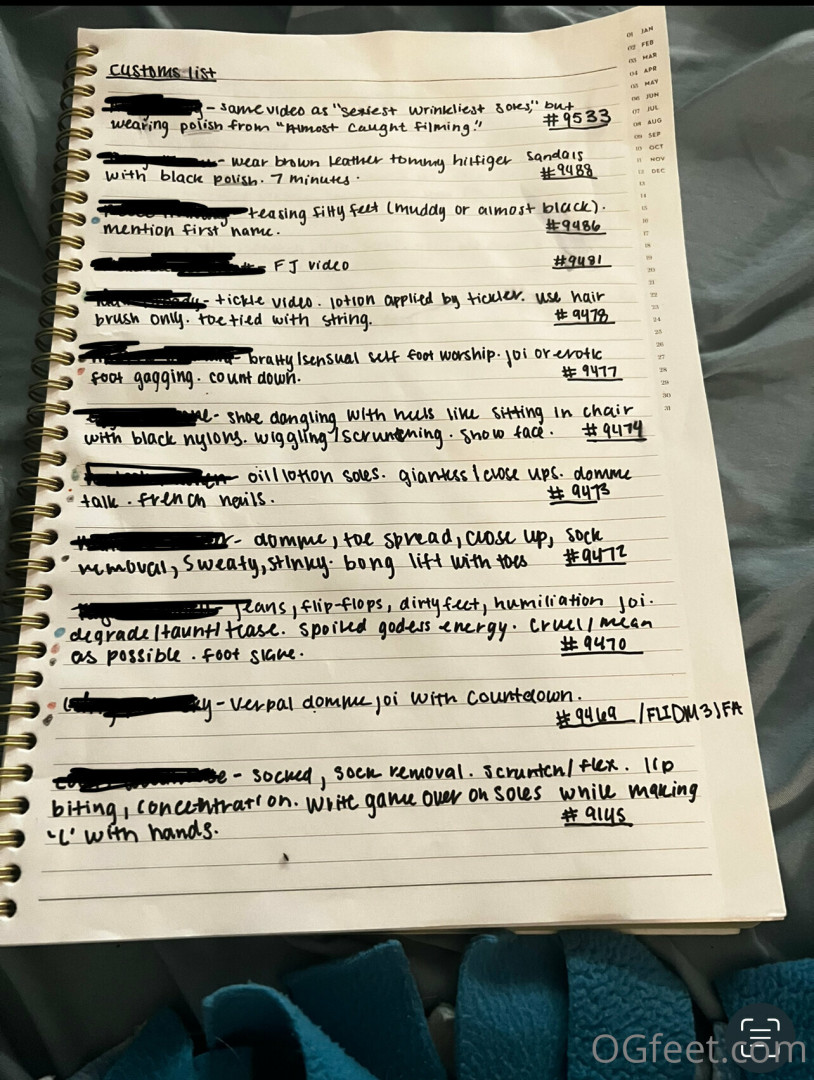 customs list
- same video as "sexiest wrinkliest soles," but
wearing polish from "Almost caught filming." #9533
- wear brown leather tommy hilfiger sandals
with black polish. 7 minutes. #9488
teasing filty feet (muddy or almost black).
mention first name. #9486
- FJ video #9481
- tickle video. lotion applied by tickler. use hair
brush only. toe tied with string. #9478
- bratty/sensual self foot worship. joi or erotic
foot gagging. count down. #9477
- shoe dangling with heels like sitting in chair
with black nylons. wiggling/scrunching. show face. #9474
- oil/lotion soles. giantess/close ups. domme
talk. french nails. #9473
- domme, toe spread, close up, sock
removal, sweaty, stinky. bong lift with toes #9472
jeans, flip-flops, dirty feet, humiliation joi.
degrade/taunt/tease. spoiled godess energy. cruel/mean
as possible. foot slave. #9470
- verbal domme joi with countdown.
#9469 /FLIDM3JFA
- socked, sock removal. scrunch/flex. lip
biting, concentration. write game over on soles while making
'L' with hands. #9145
01 JAN
02 FEB
03 MAR
04 APR
05 MAY
06 JUN
07 JUL
08 AUG
09 SEP
10 OCT
11 NOV
12 DEC
13
14
15
16
17
18
19
20
21
22
23
24
25
26
27
28
29
30
31
OGfeet.com